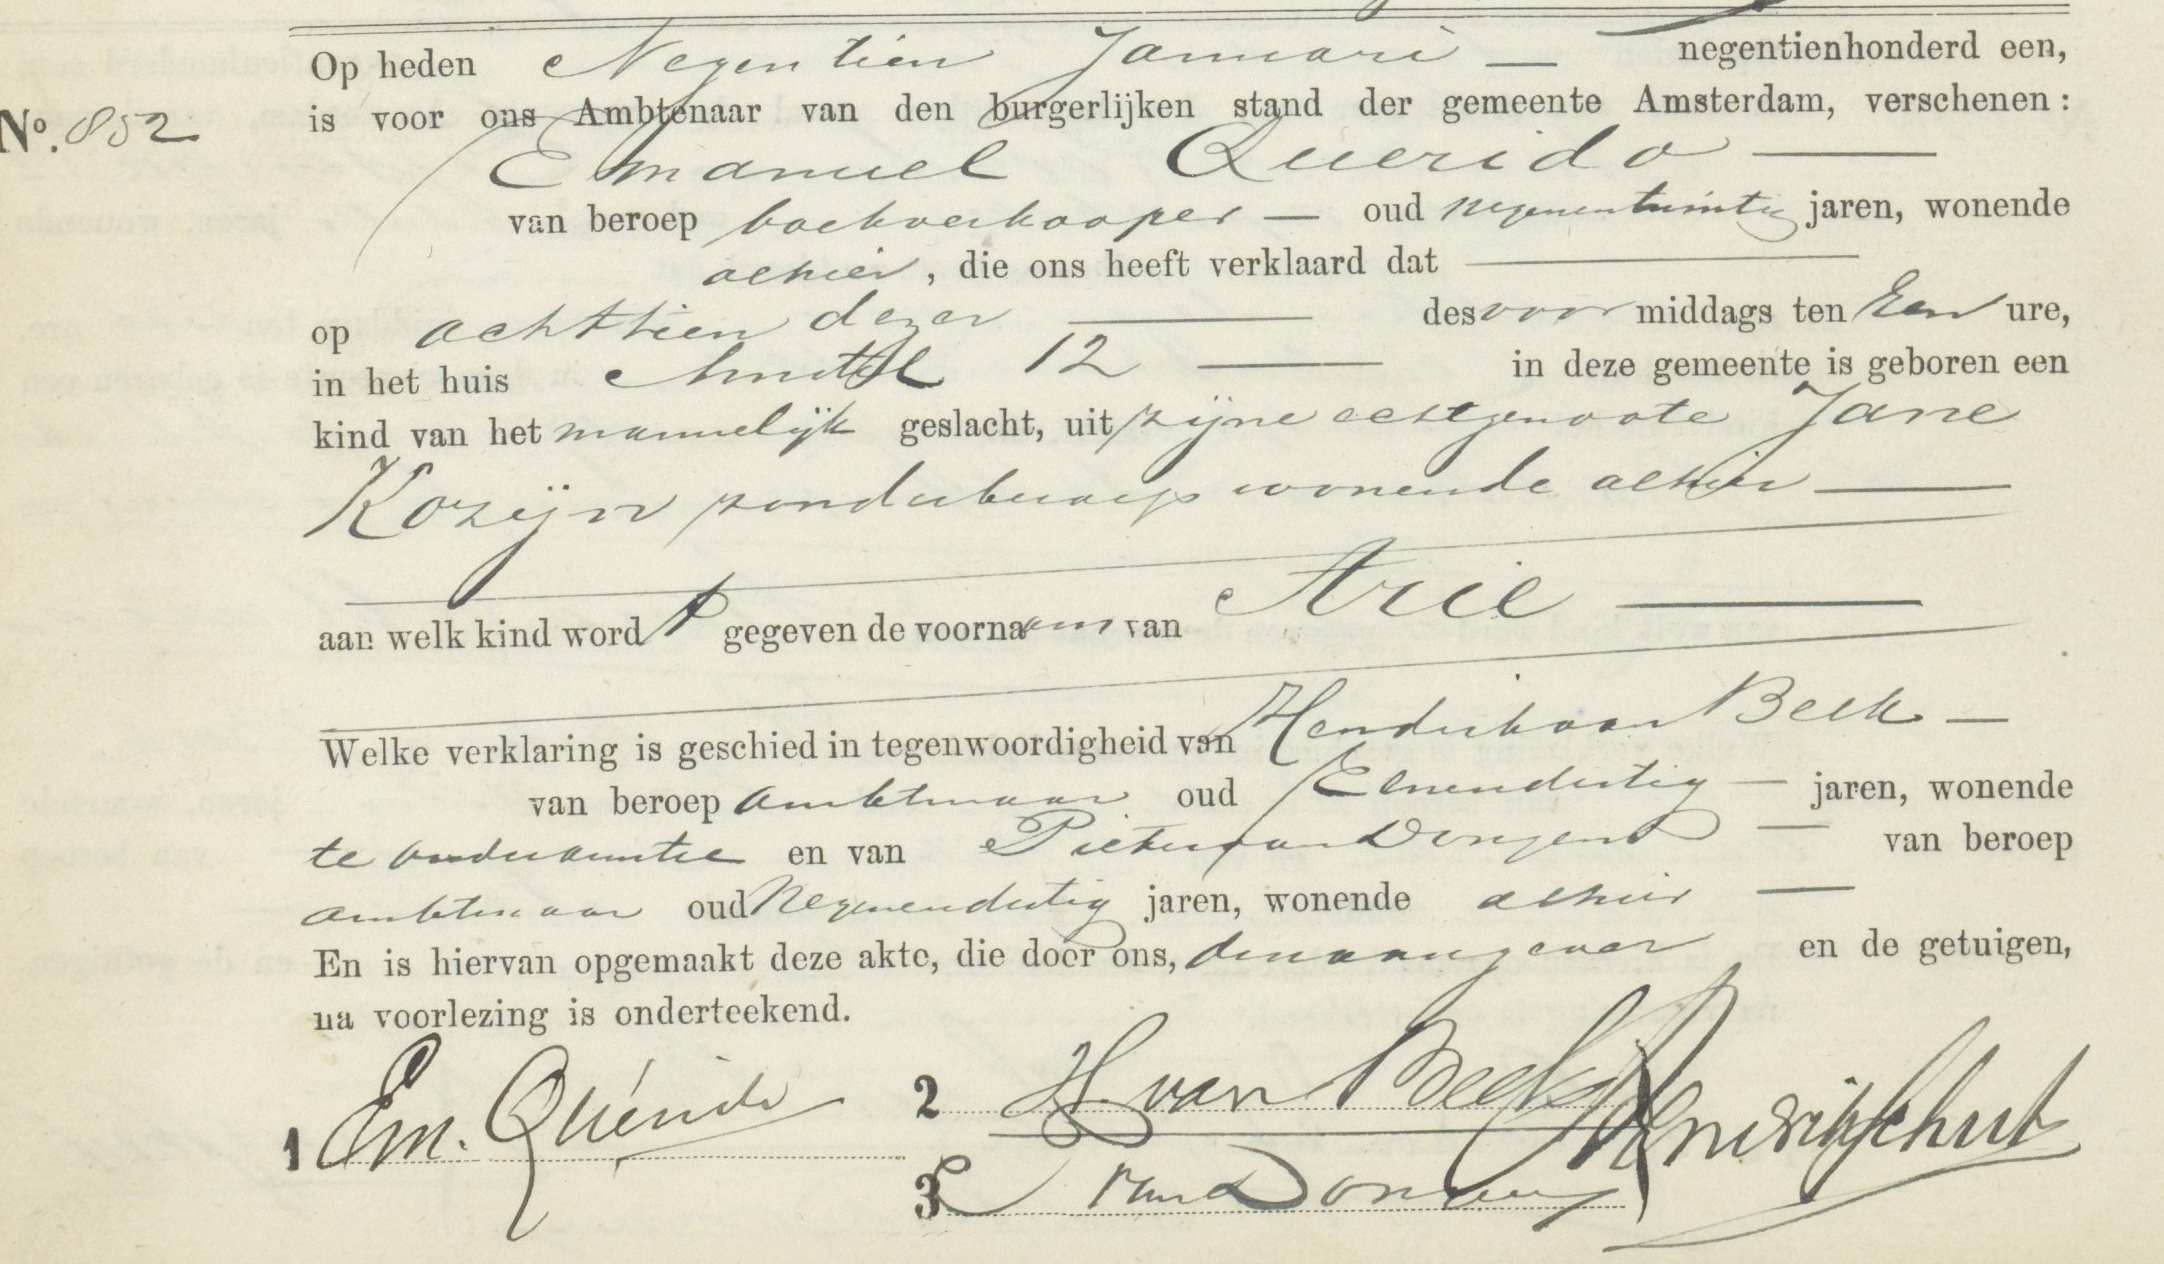 Op heden Negentien Januari — negentienhonderd een,
No. 852 is voor ons Ambtenaar van den burgerlijken stand der gemeente Amsterdam, verschenen:
Emanuel Querido —
van beroep boekverkooper — oud negenentwintig jaren, wonende
alhier, die ons heeft verklaard dat —
op achttien dezer — des voor middags ten Een ure,
in het huis Amstel 12 — in deze gemeente is geboren een
kind van het mannelijk geslacht, uit zijne echtgenoote Jane
Kozijn zonder beroep wonende alhier —
aan welk kind wordt gegeven de voornaam van Arie —
Welke verklaring is geschied in tegenwoordigheid van Hendrik van Beek —
van beroep ambtenaar oud Eenendertig — jaren, wonende
te en van Pieter van Dongen — van beroep
ambtenaar oud Negenendertig jaren, wonende alhier —
En is hiervan opgemaakt deze akte, die door ons, den aangever en de getuigen,
na voorlezing is onderteekend.
1 Em. Quérido
2 H. van Beek
3 P van Dongen